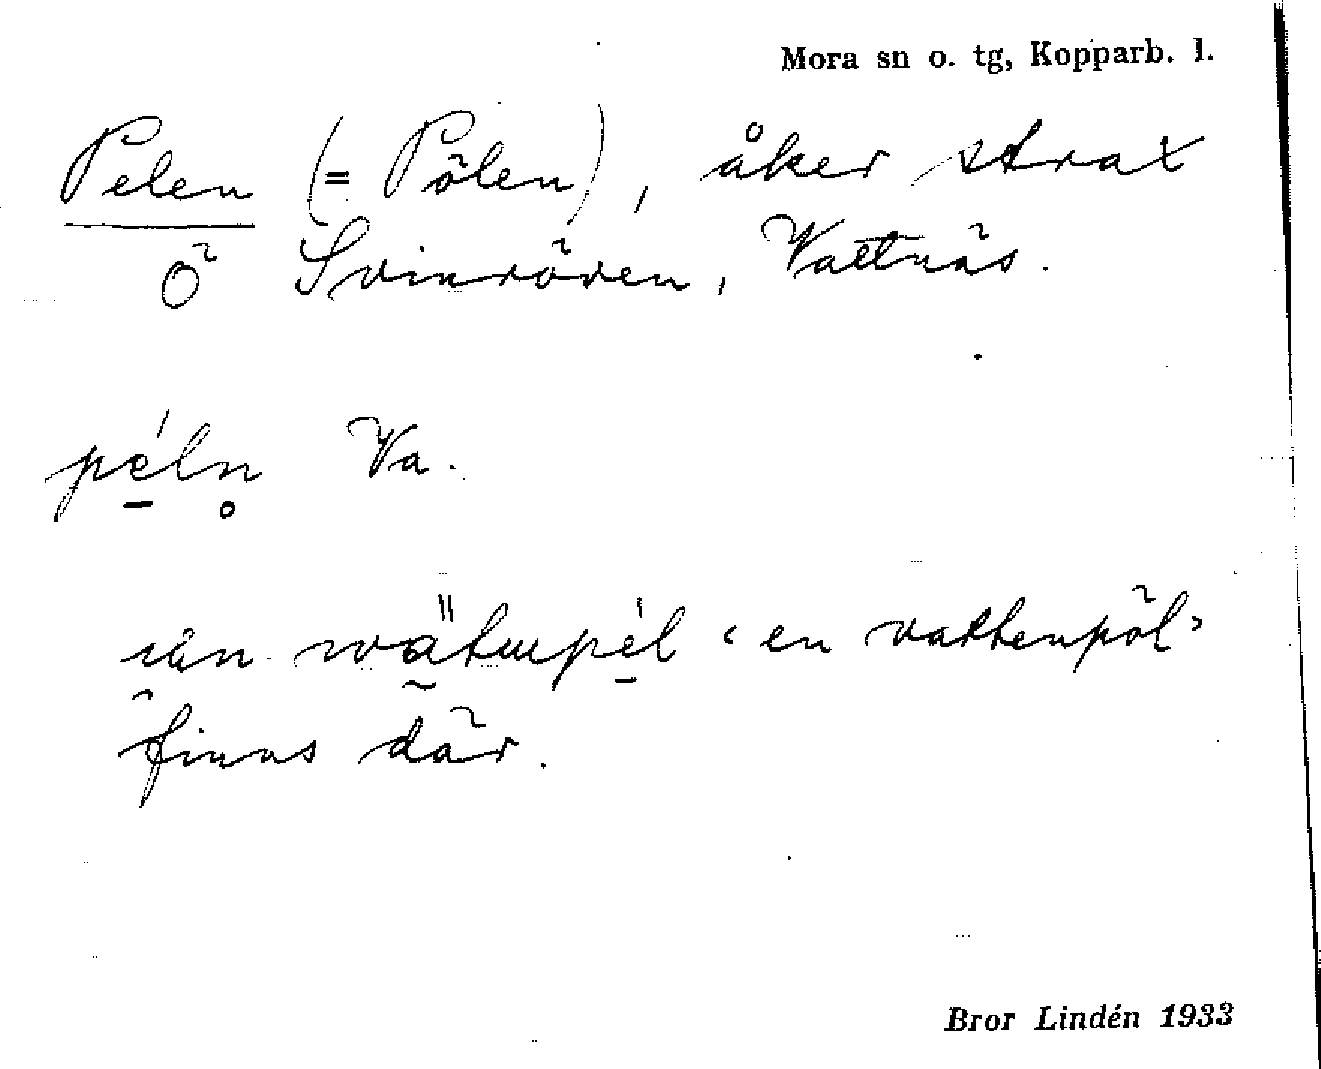 Mora sn o. tg, Kopparb. l.
Pelen (= Pölen), åker strax
Ö Svinröven, Vattnäs.
péln̥ Va.
"en vattenpöl"
finns där.
Bror Lindén 1933